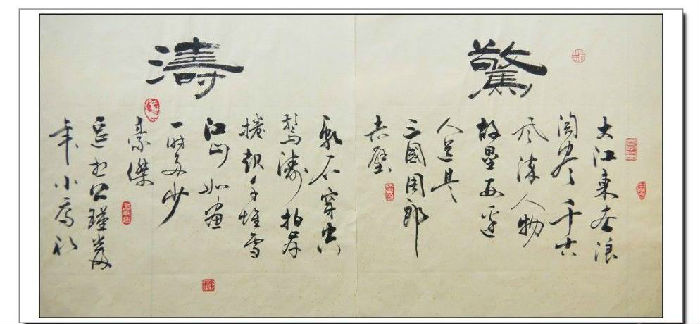 驚濤
大江東去浪
淘盡千古
风流人物
故壘西邊
人道是
三國周郎
赤壁
亂石穿空
驚濤拍岸
捲起千堆雪
江山如畫
一時多少
豪傑
遙想公瑾當
年小喬初